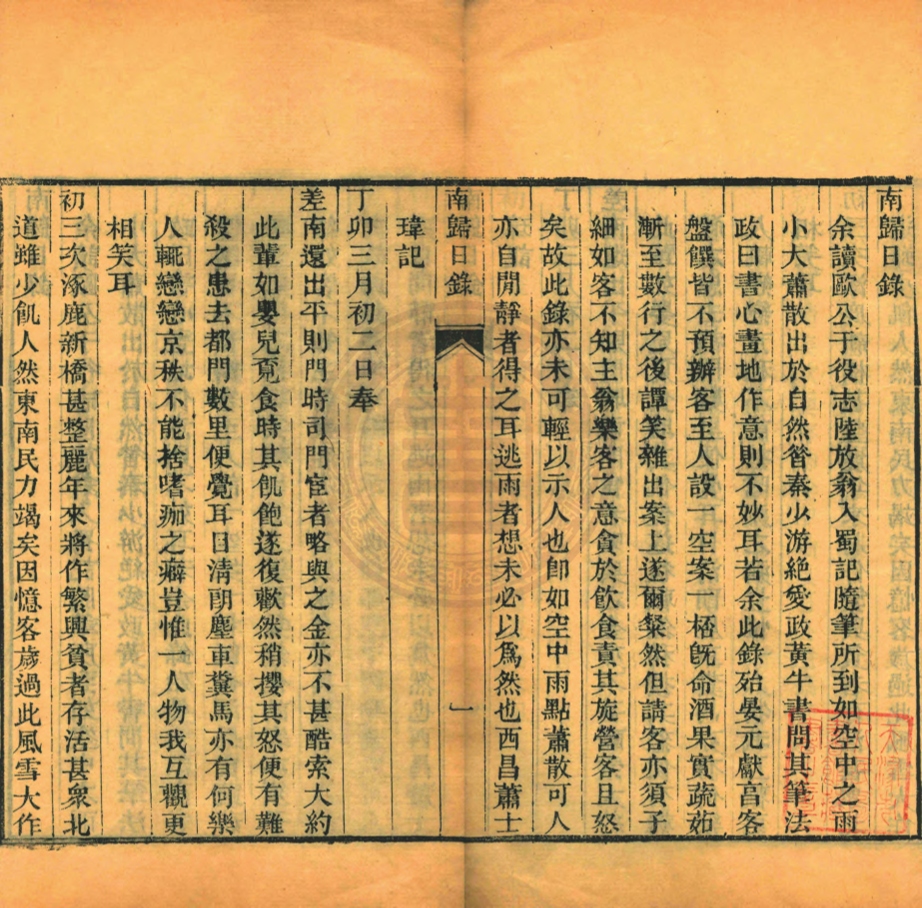 南歸日錄
余讀歐公于役志陸放翁入蜀記隨筆所到如空中之雨
小大蕭散出於自然昝秦少游絕愛政黃牛書問其筆法
政曰書心畫地作意則不妙耳若余此錄殆晏元獻喜客
盤饌皆不預辦客至人設一空案一桮旣命酒果實蔬茹
漸至數行之後譚笑雜出案上遂爾粲然但請客亦須子
細如客不知主翁樂客之意貪於飮食責其旋營客且怒
矣故此錄亦未可輕以示人也卽如空中雨點蕭散可人
亦自閒靜者得之耳逃雨者想未必以爲然也西昌蕭士
瑋記
南歸日錄
一
丁卯三月初二日奉
差南還出平則門時司門宦者略與之金亦不甚酷索大約
此輩如嬰兒覔食時其飢飽遂復歡然稍攖其怒便有難
殺之患去都門數里便覺耳目淸朗塵車糞馬亦有何樂
人輒戀戀京秩不能捨嗜痂之癖豈惟一人物我互觀更
相笑耳
初三次涿鹿新橋甚整麗年來將作繁興貧者存活甚衆北
道雖少飢人然東南民力竭矣因憶客歲過此風雪大作